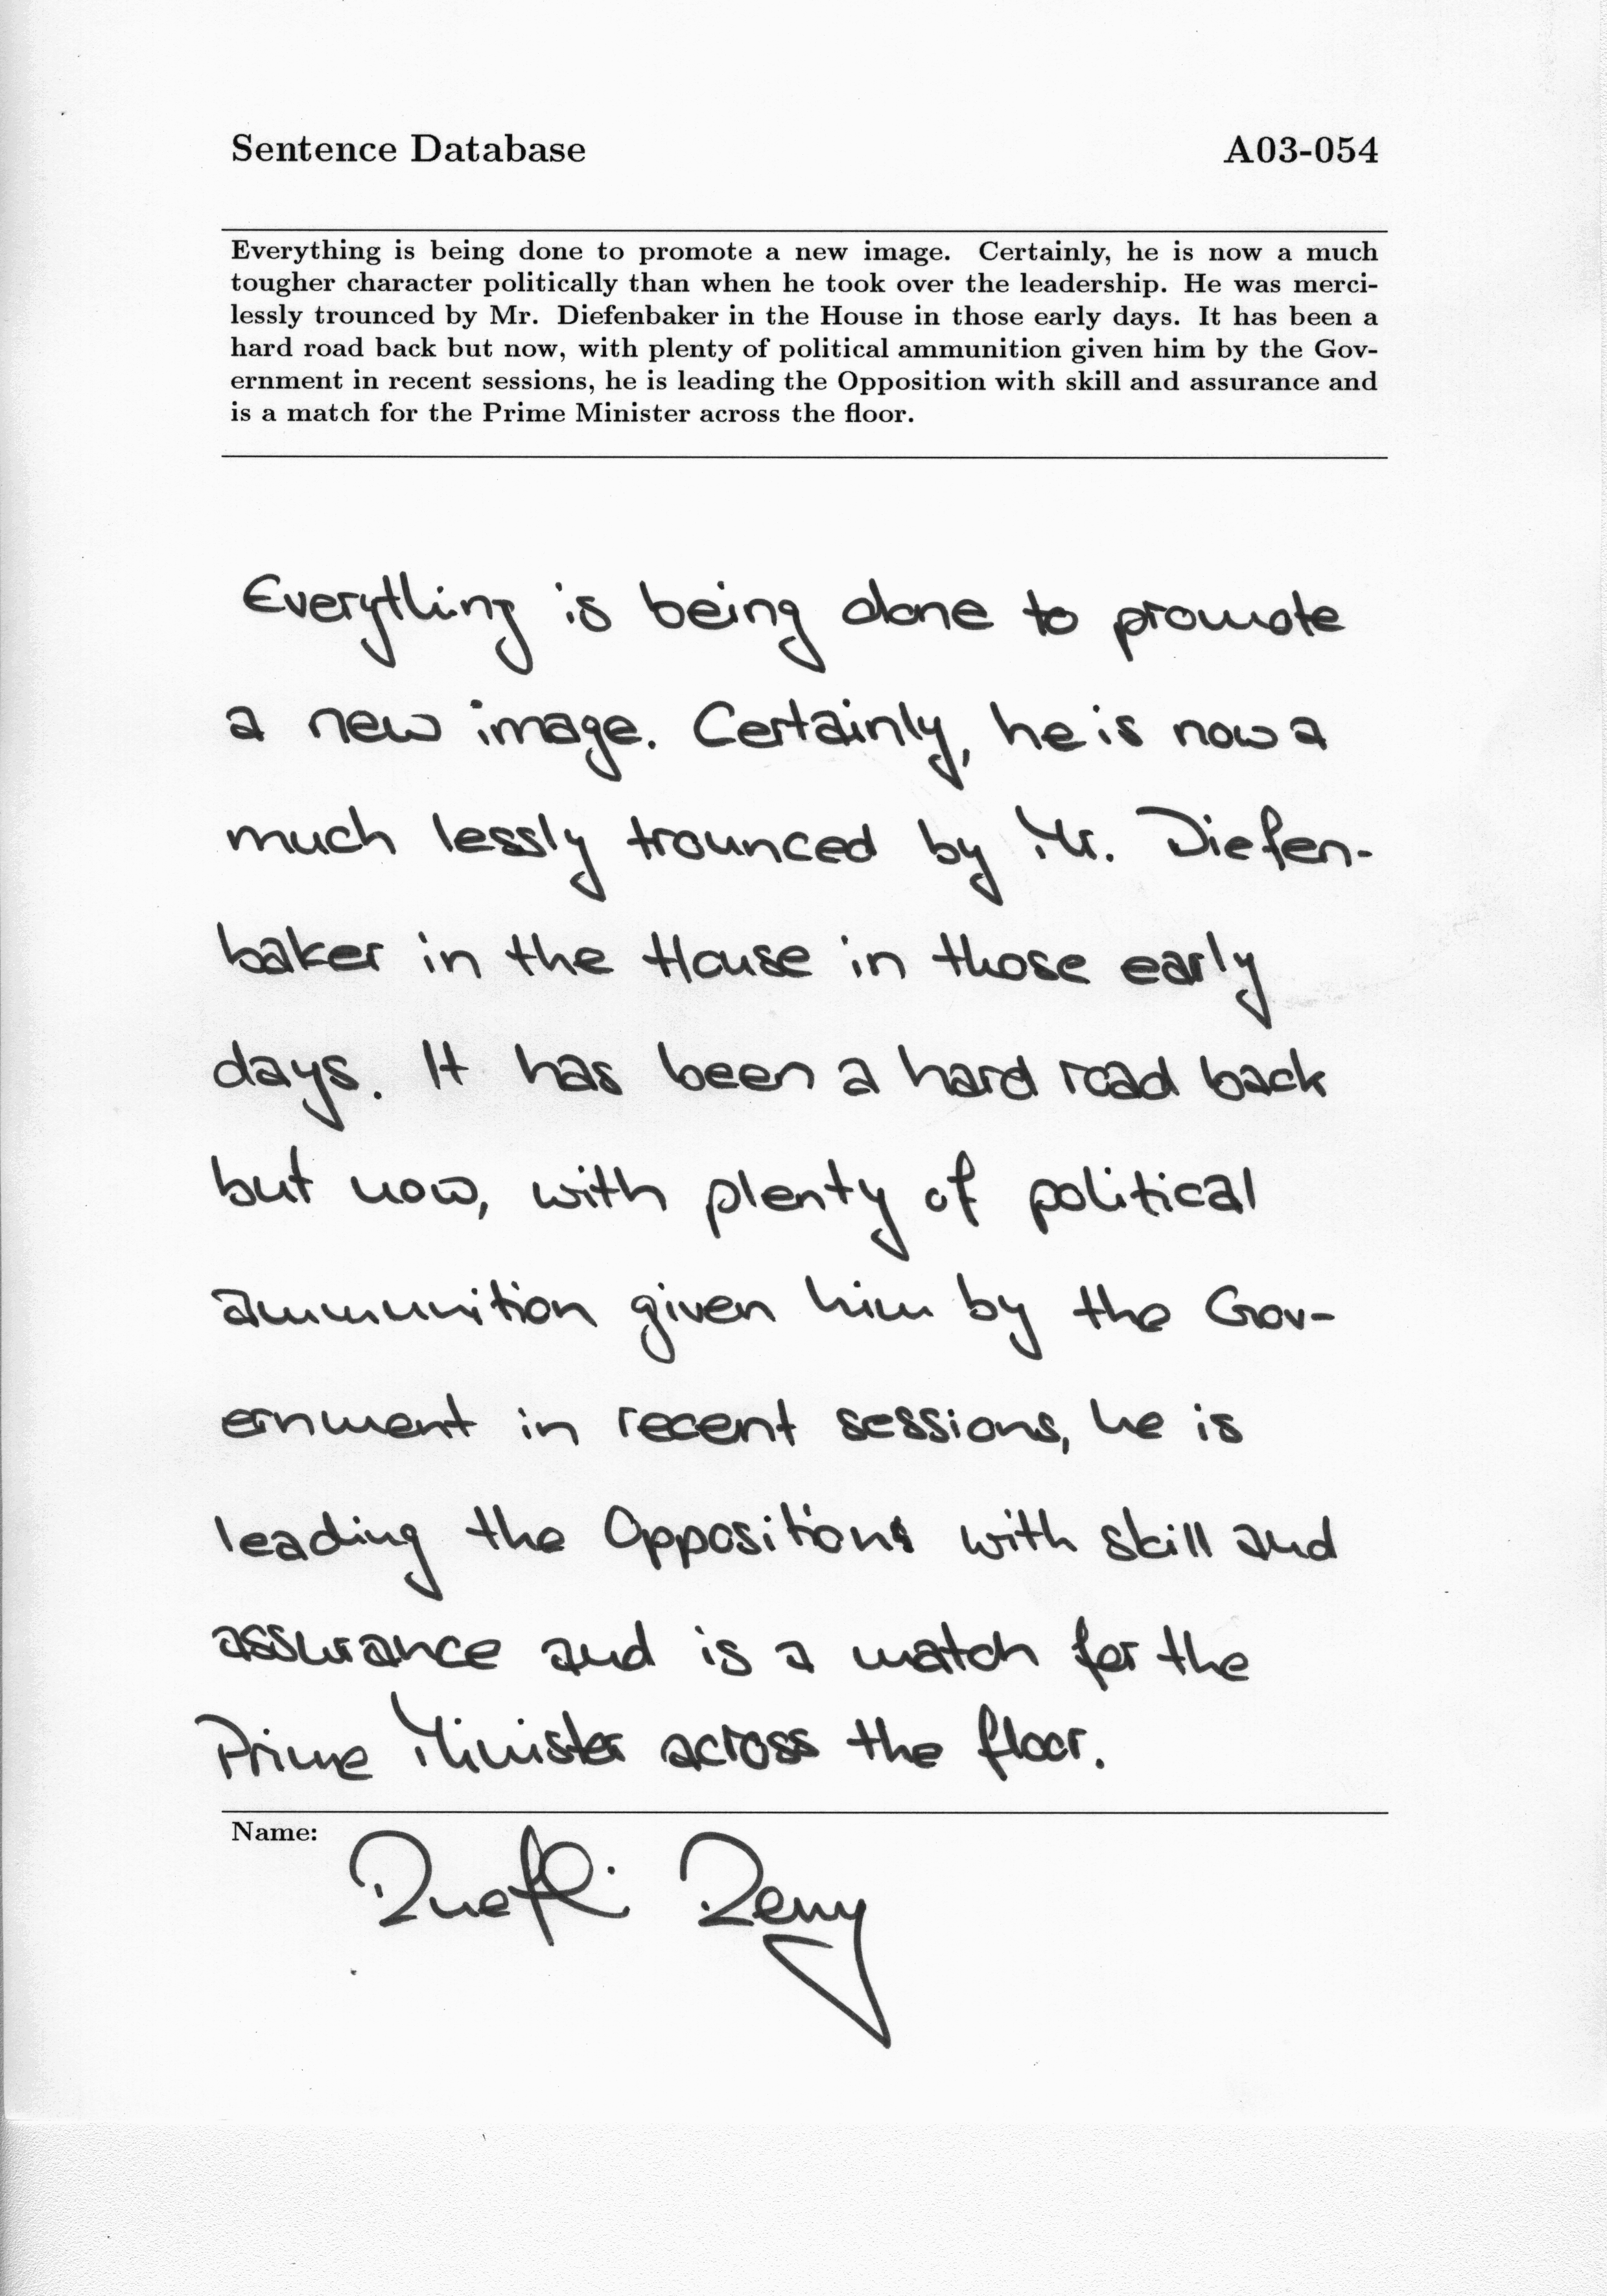 Sentence Database A03-054
Everything is being done to promote a new image. Certainly, he is now a much
tougher character politically than when he took over the leadership. He was merci-
lessly trounced by Mr. Diefenbaker in the House in those early days. It has been a
hard road back but now, with plenty of political ammunition given him by the Gov-
ernment in recent sessions, he is leading the Opposition with skill and assurance and
is a match for the Prime Minister across the floor.
Everything is being done to promote
a new image. Certainly, he is now a
much lessly trounced by Mr. Diefen-
baker in the House in those early
days. It has been a hard road back
but now, with plenty of political
ammunition given him by the Gov-
ernment in recent sessions, he is
leading the Opposition with skill and
assurance and is a match for the
Prime Minister across the floor.
Name: